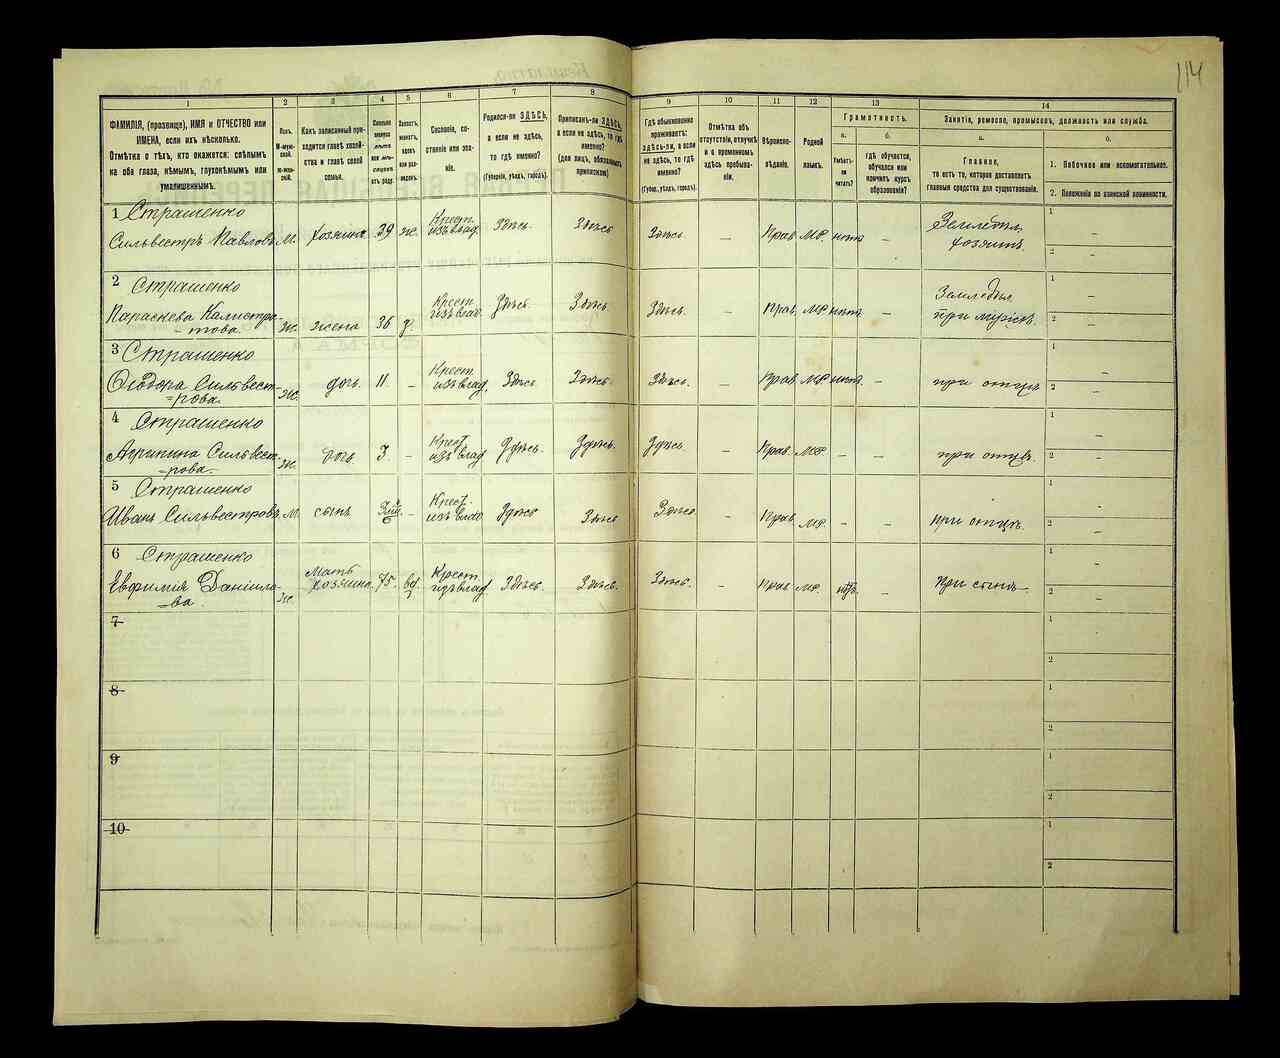 114
1 2 3 4 5 6 7 8 9 10 11 12 13 14
ФАМИЛІЯ, (прозвище), ИМЯ и ОТЧЕСТВО или
ИМЕНА, если ихъ нѣсколько.
Отмѣтка о тѣхъ, кто окажется: слѣпымъ
на оба глаза, нѣмымъ, глухонѣмымъ или
умалишеннымъ.
Полъ.
М-мужской.
Ж-женскій.
Какъ записанный приходится главѣ хозяйства и главѣ своей семьи.
Сословіе, состояніе или званіе.
Родился-ли ЗДѢСЬ,
а если не здѣсь,
то гдѣ именно?
(Губернія, уѣздъ, городъ).
Приписанъ-ли ЗДѢСЬ,
а если не здѣсь, то гдѣ
именно?
(для лицъ, обязанныхъ
припискою)
Гдѣ обыкновенно
проживаетъ:
здѣсь-ли, а если
не здѣсь, то гдѣ
именно?
(Губер., уѣздъ, городъ).
Отмѣтка объ
отсутствіи, отлучкѣ
и о временномъ
здѣсь пребываніи.
Вѣроисповѣданіе.
Родной
языкъ.
Грамотность.
а. б.
Умѣетъ-ли
читать?
гдѣ обучается,
обучался или
кончилъ курсъ
образованія?
Занятія, ремесло, промыселъ, должность или служба.
а. б.
Главное,
то есть то, которое доставляетъ
главныя средства для существованія.
1. Побочное или вспомогательное.
2. Положеніе по воинской повинности.
1 Страшенко
Сильвестръ Павловъ М. хозяинъ 39 ж. Крест. изъ влад. Здѣсь Здѣсь Здѣсь – Прав. МР. нѣтъ – Земледѣл. хозяинъ. 1 – 2 –
2 Страшенко
Параскева Калистратова. ж. жена 36 з. Крест. изъ влад. Здѣсь. Здѣсь Здѣсь. – Прав. МР. нѣтъ – Земледѣл. при 1 – 2 –
3 Страшенко
Ѳеодора Сильвестрова. ж. дочь 11 – Крест. изъ влад. Здѣсь Здѣсь. Здѣсь. – Прав. МР. нѣтъ – при отцѣ 1 – 2 –
4 Страшенко
Агрипина Сильвестрова. ж. дочь 3. – Крест. изъ влад. Здѣсь. Здѣсь. Здѣсь – Прав. МР. – – при отцѣ. 1 – 2 –
5 Страшенко
Иванъ Сильвестровъ М. сынъ – Крест. изъ влад. Здѣсь Здѣсь Здѣсь – Прав. МР. – – при отцѣ. 1 – 2 –
6 Страшенко
Евфимія Даніилова. ж. Мать хозяина. 75. вд. Крест. изъ влад. Здѣсь. Здѣсь. Здѣсь. – Прав. МР. нѣтъ – При сынѣ 1 – 2 –
7 1 2
8 1 2
9 1 2
10 1 2